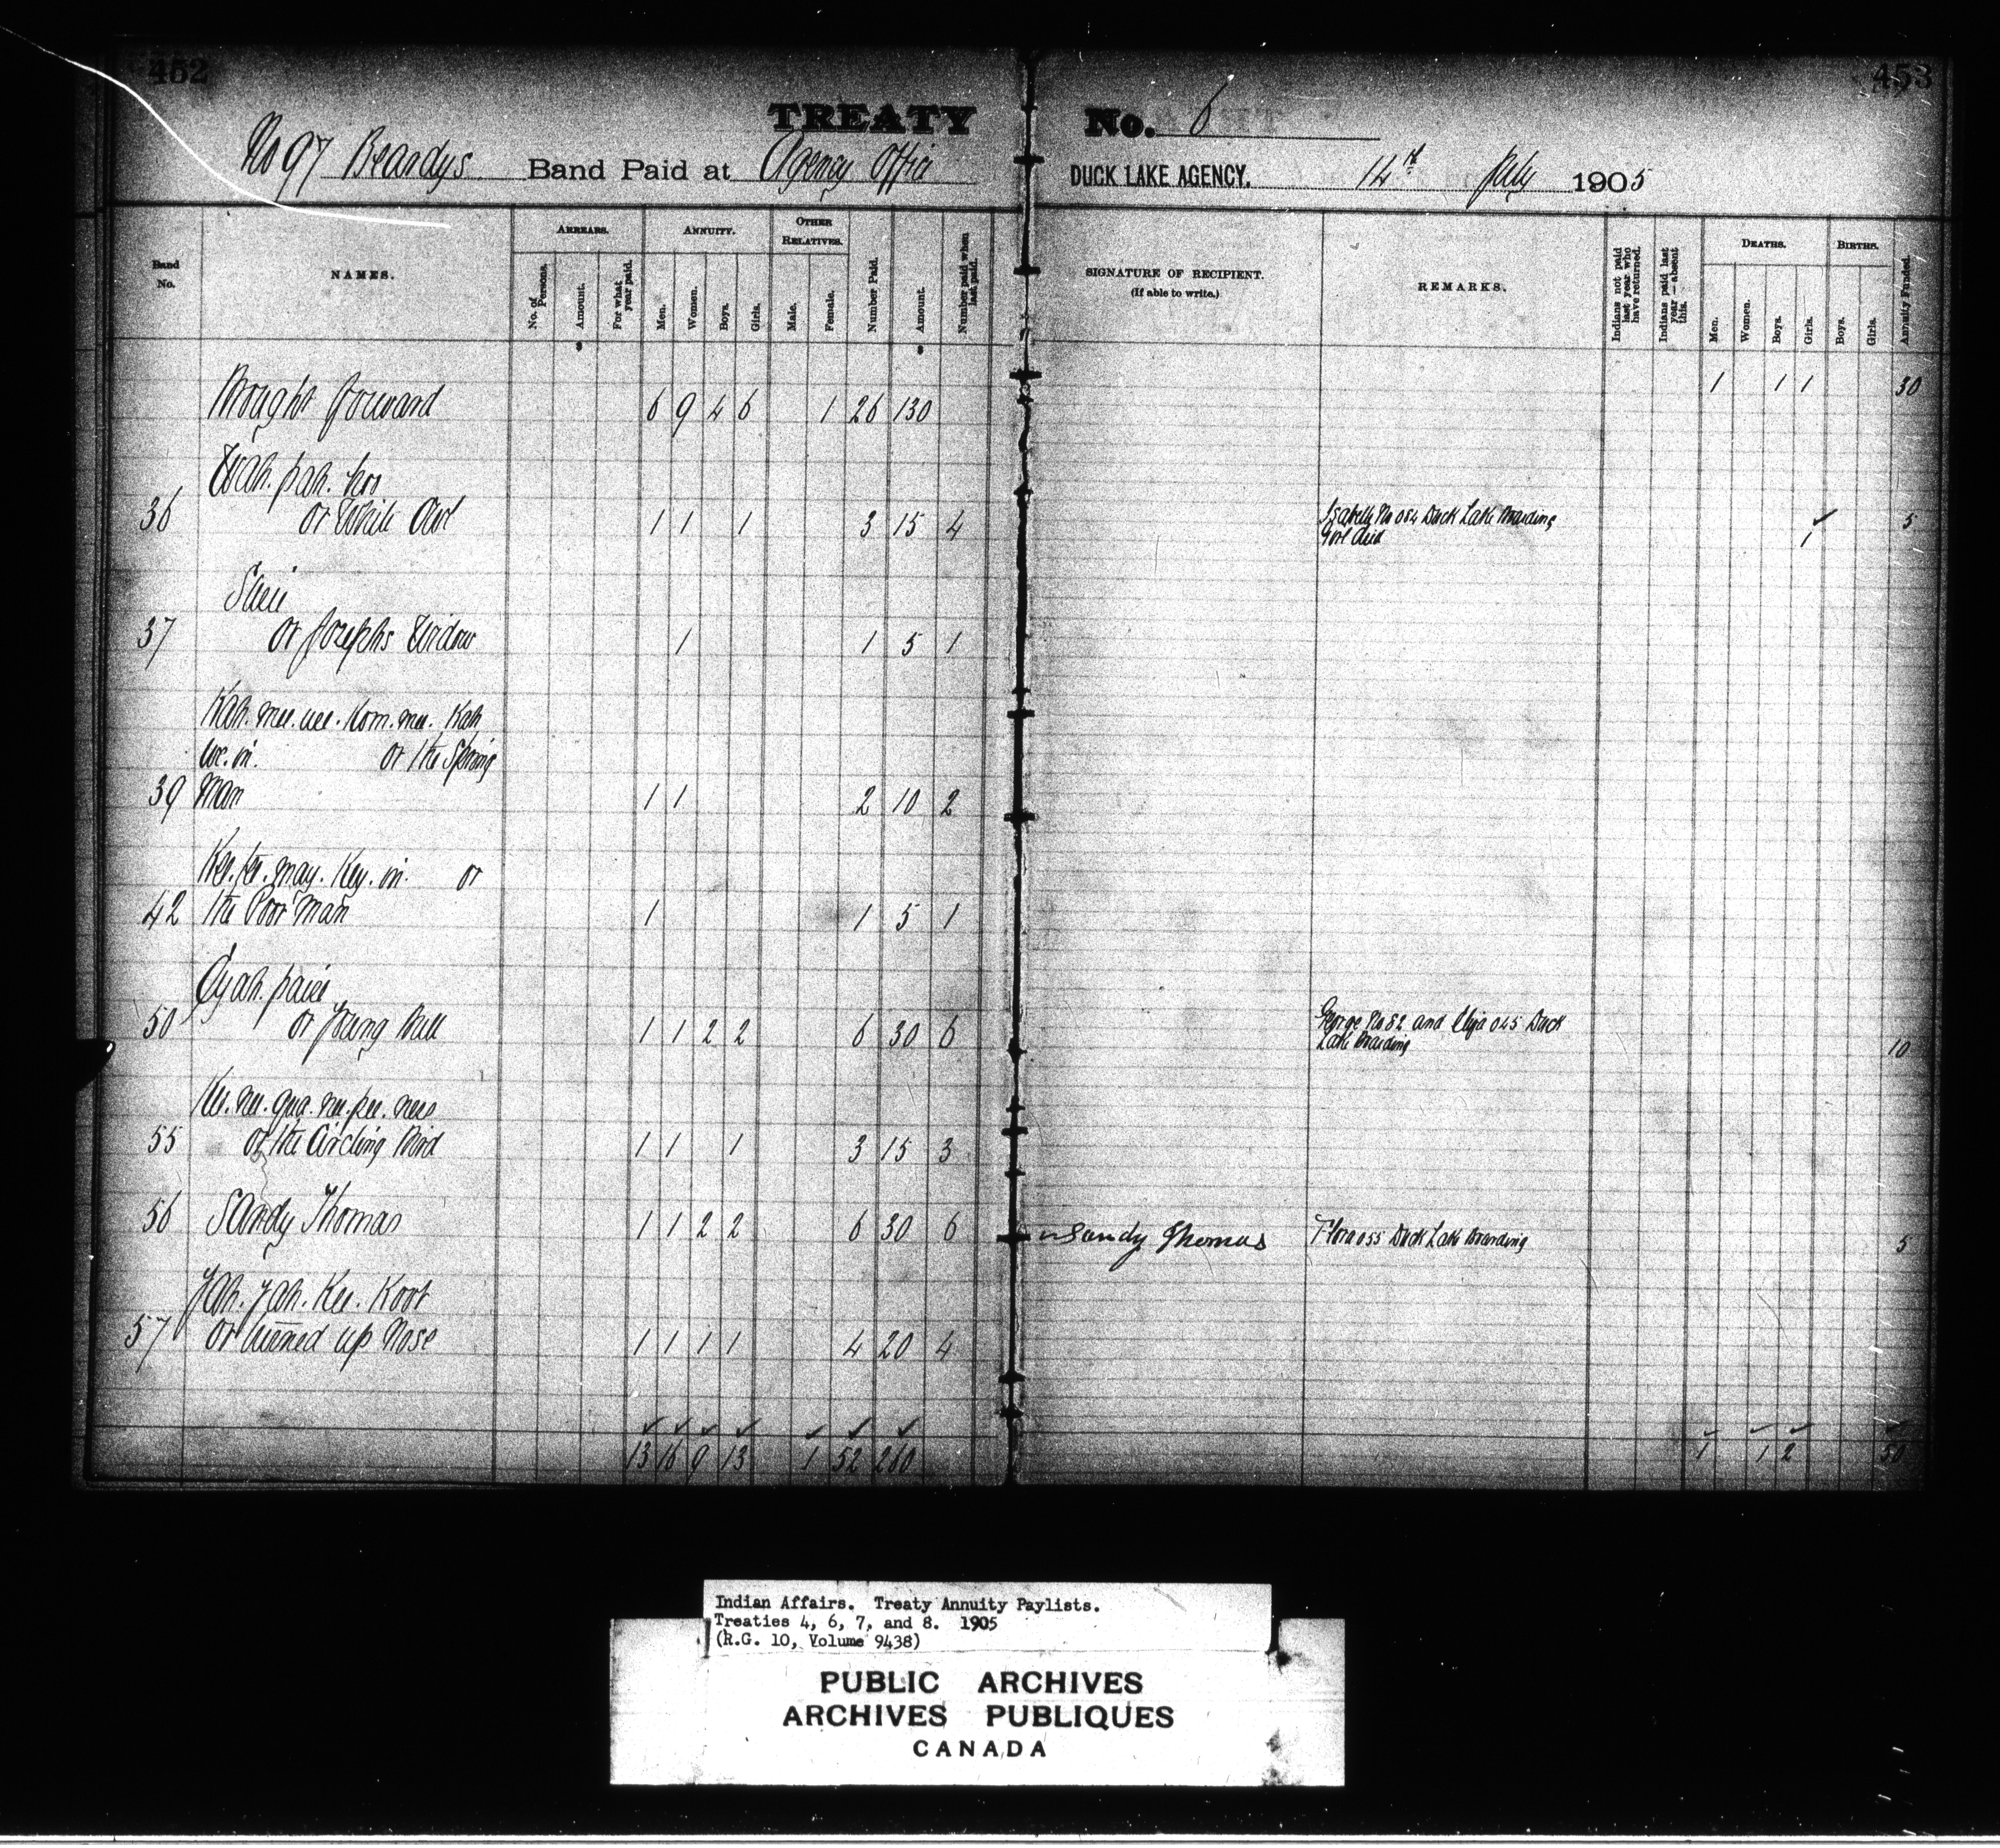 452
453
TREATY No. 6
No 97 Beardys Band Paid at Agency Office
DUCK LAKE AGENCY, 14th July 1905
Band No.
NAMES.
ARREARS.
No. of Persons.
Amount.
For what year paid.
ANNUITY.
Men.
Women.
Boys.
Girls.
OTHER RELATIVES.
Male.
Female.
Number Paid.
Amount.
Number paid when last paid.
SIGNATURE OF RECIPIENT.
(If able to write.)
REMARKS.
Indians not paid last year who have returned.
Indians paid last year—absent this.
DEATHS.
Men.
Women.
Boys.
Girls.
BIRTHS.
Boys.
Girls.
Annuity Funded.
$ $
Brought forward 6 9 4 6 1 26 130 1 1 1 30
Wah. pah. hoo
36 or White Owl 1 1 1 3 15 4 Isabelle No 054 Duck Lake Boarding ✓ 5
Girl died 1
37 or Josephs Widow 1 1 5 1
Kah. mee. Kom. mee. Kah
or the Spring
39 Man 1 1 2 10 2
or
42 the Poor Man 1 1 5 1
50 or Young Bull 1 1 2 2 6 30 6 George No 82 and Eliza 045 Duck
Lake Boarding 10
55 or the Circling Bird 1 1 1 3 15 3
56 Sandy Thomas 1 1 2 2 6 30 6 Sandy Thomas Flora 055 Duck Lake Boarding 5
Yah. Yah. Kee. Koot
57 or turned up Nose 1 1 1 1 4 20 4
✓ ✓ ✓ ✓ ✓ ✓ ✓ ✓ ✓ ✓ ✓
13 16 9 13 1 52 260 1 1 2 50
Indian Affairs. Treaty Annuity Paylists.
Treaties 4, 6, 7, and 8. 1905
(R.G. 10, Volume 9438)
PUBLIC ARCHIVES
ARCHIVES PUBLIQUES
CANADA